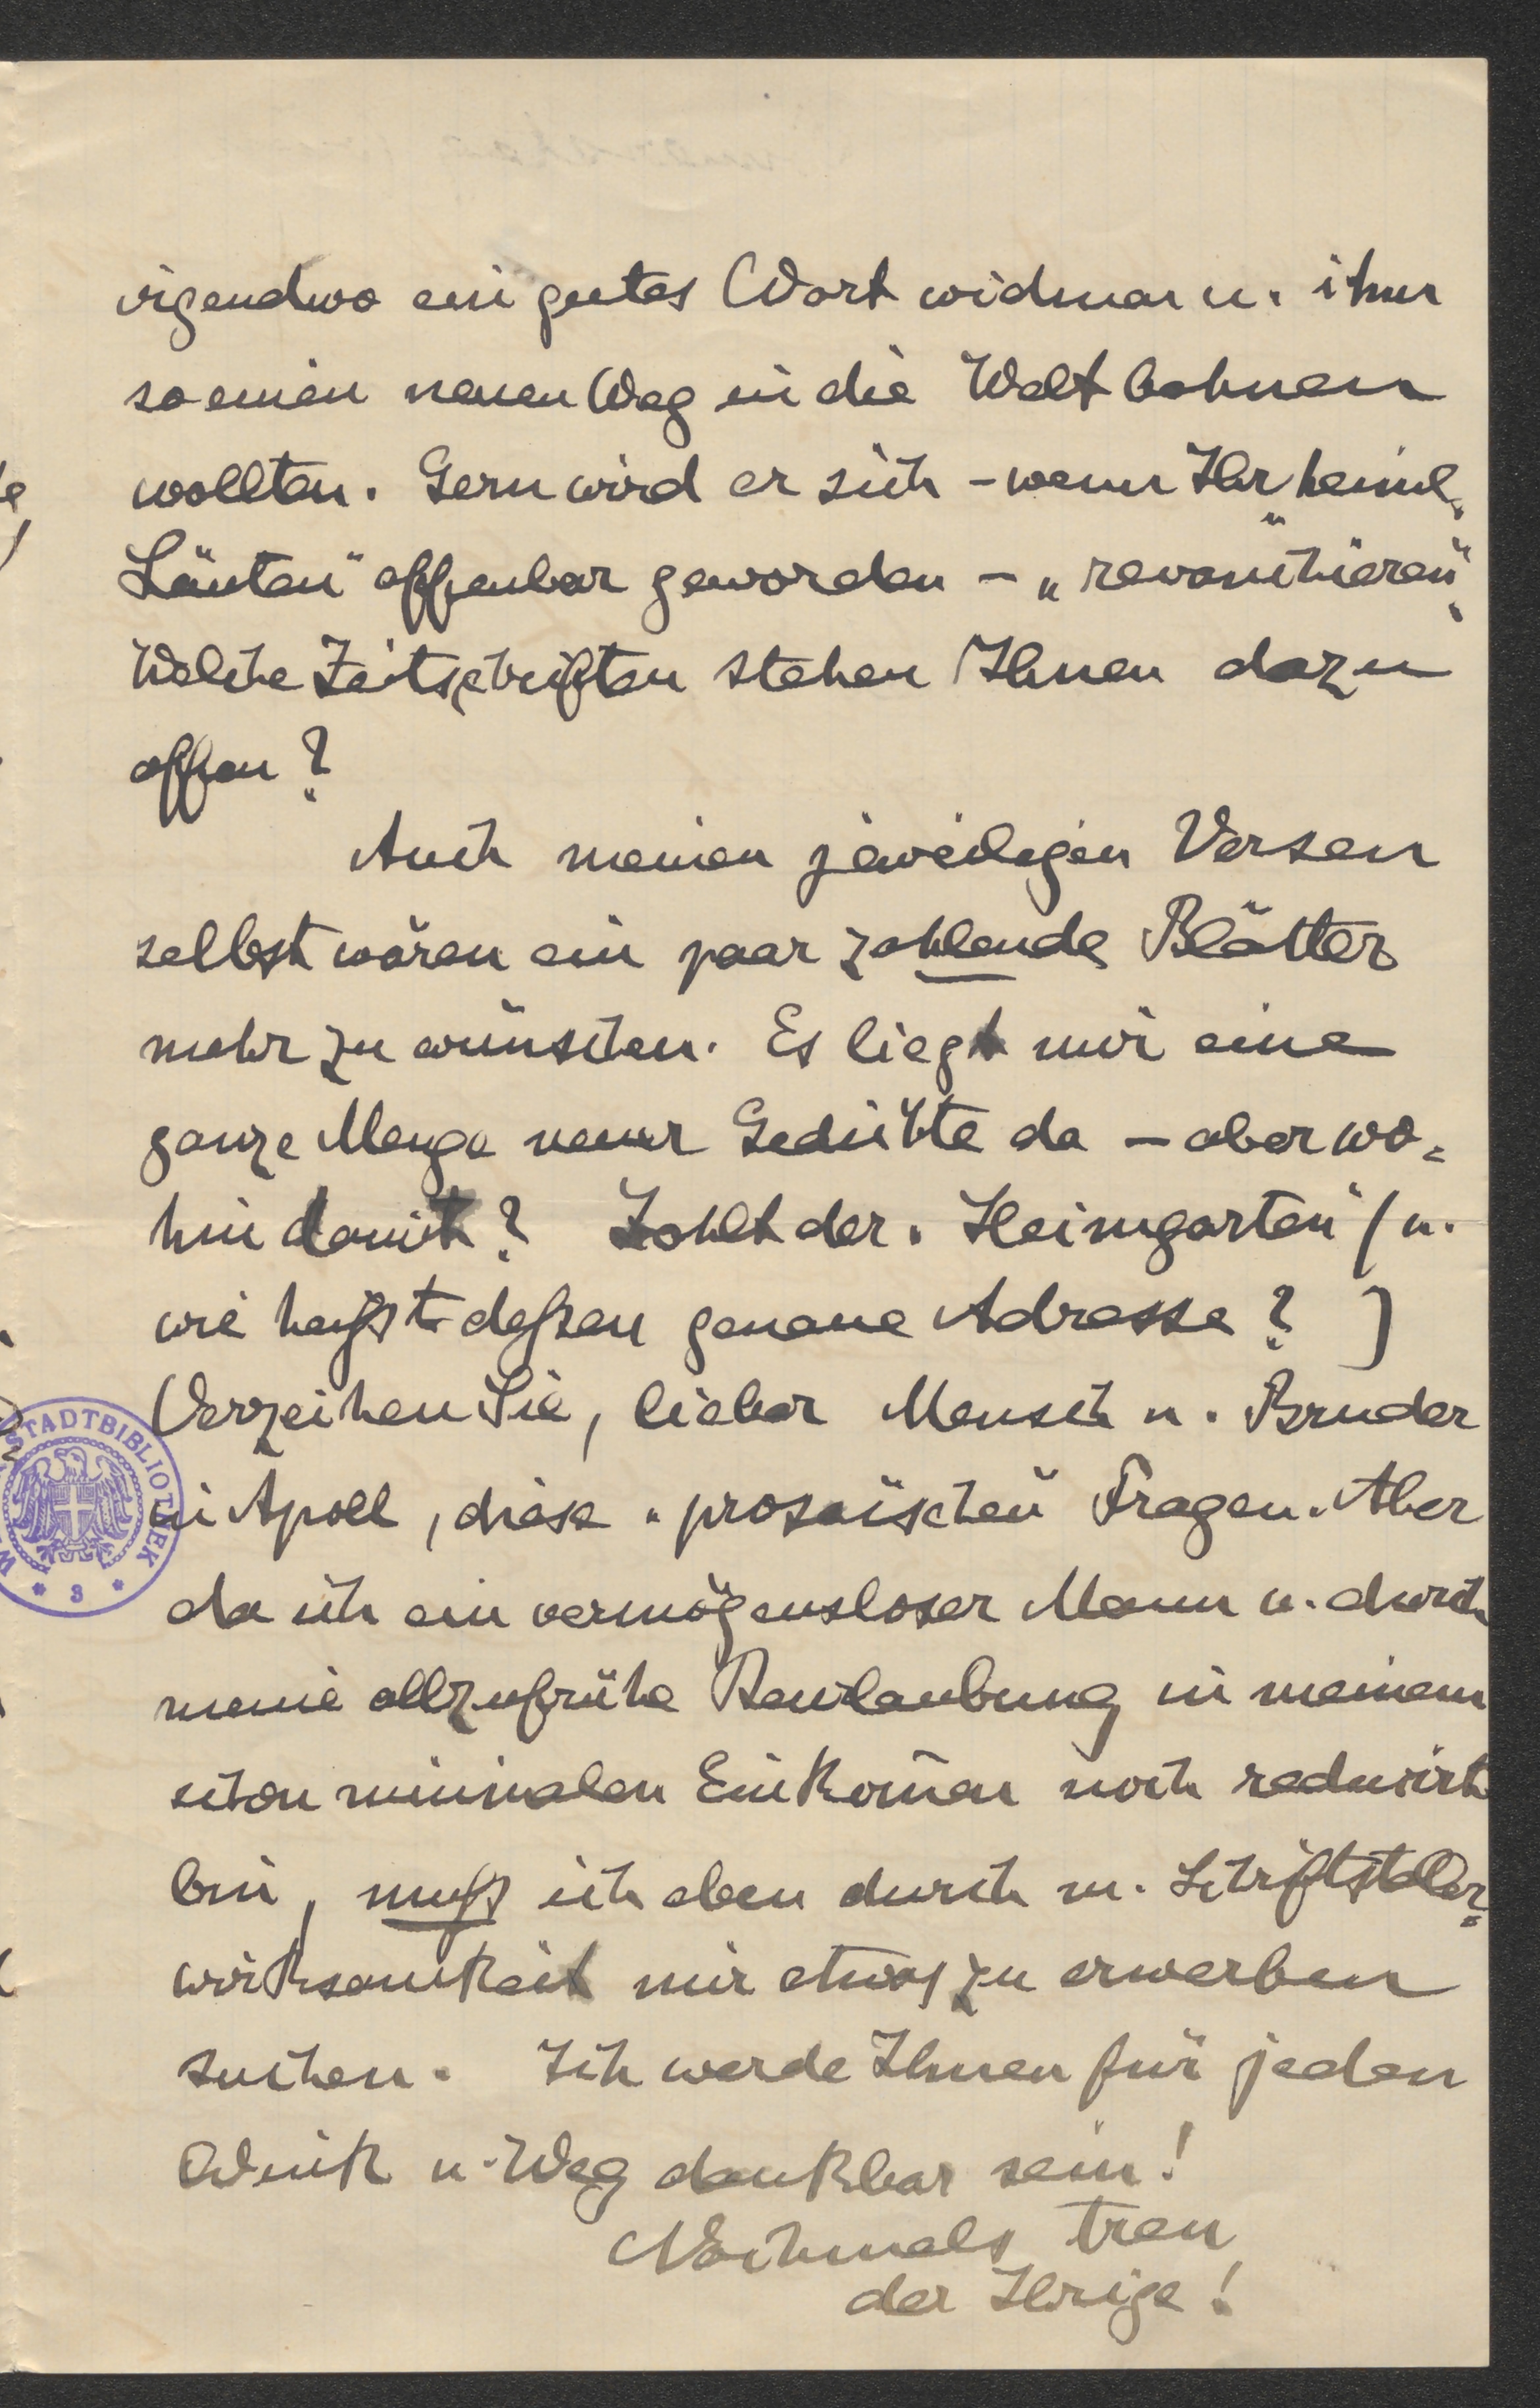 irgendwo ein gutes Wort widmen u. ihm
so einen neuen Weg in die Welt bahnen
wollten. Gern wird er sich – wenn Ihr „heiml.
Läuten“ offenbar geworden – „revanchieren“.
Welche Zeitschriften stehen Ihnen dazu
offen?
Auch meinen jeweiligen Versen
selbst wären ein paar zahlende Blätter
mehr zu wünschen. Es liegt mir eine
ganze Menge neuer Gedichte da – aber wo=
hin damit? Zahlt der „Heimgarten“ (u.
wie heißt deßen genaue Adresse?)
Verzeihen Sie, lieber Mensch u. Bruder
in Apoll, diese „prosaischen“ Fragen. Aber
da ich ein vermögensloser Mann u. durch
meine allzufrühe Beurlaubung in meinem
schon minimalen Einkom̄en noch reduzirt
bin, muß ich eben durch m. Schriftsteller=
wirksamkeit mir etwas zu erwerben
suchen. Ich werde Ihnen für jeden
Wink u. Weg dankbar sein!
Nochmals treu
der Ihrige!
STADTBIBLIOTHEK
* 3 *